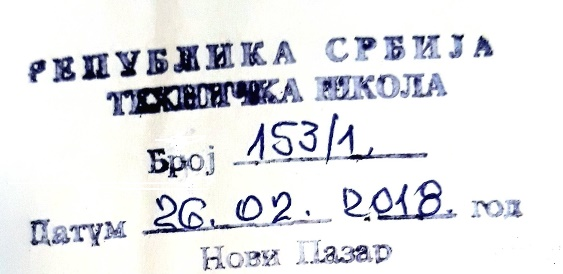 РЕПУБЛИКА СРБИЈА
ТЕХНИЧКА ШКОЛА
Број 153/1
Датум 26. 02. 2018. год
Нови Пазар